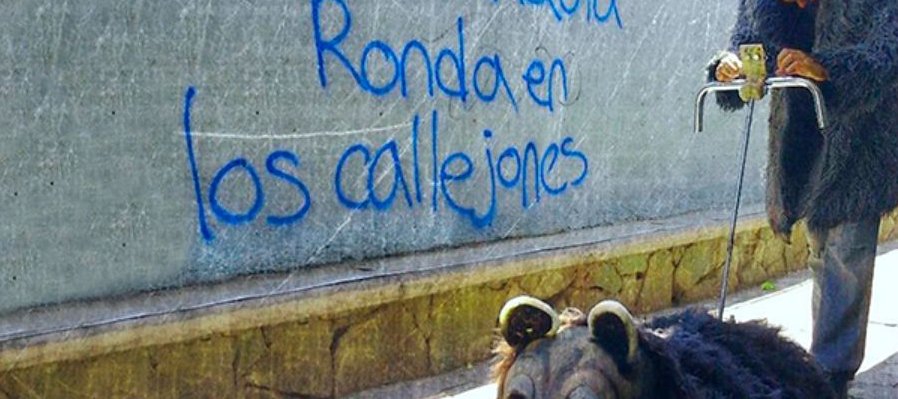 Ronda en
los callejones